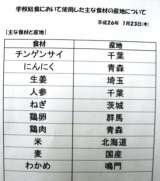 学校給食において使用した主な食材の産地について
平成26年 1月23日(木)
[主な食材と産地]
食材 産地
チンゲンサイ 千葉
にんにく 青森
生姜 埼玉
人参 千葉
ねぎ 茨城
鶏卵 群馬
鶏肉 青森
米 北海道
麦 国産
わかめ 鳴門